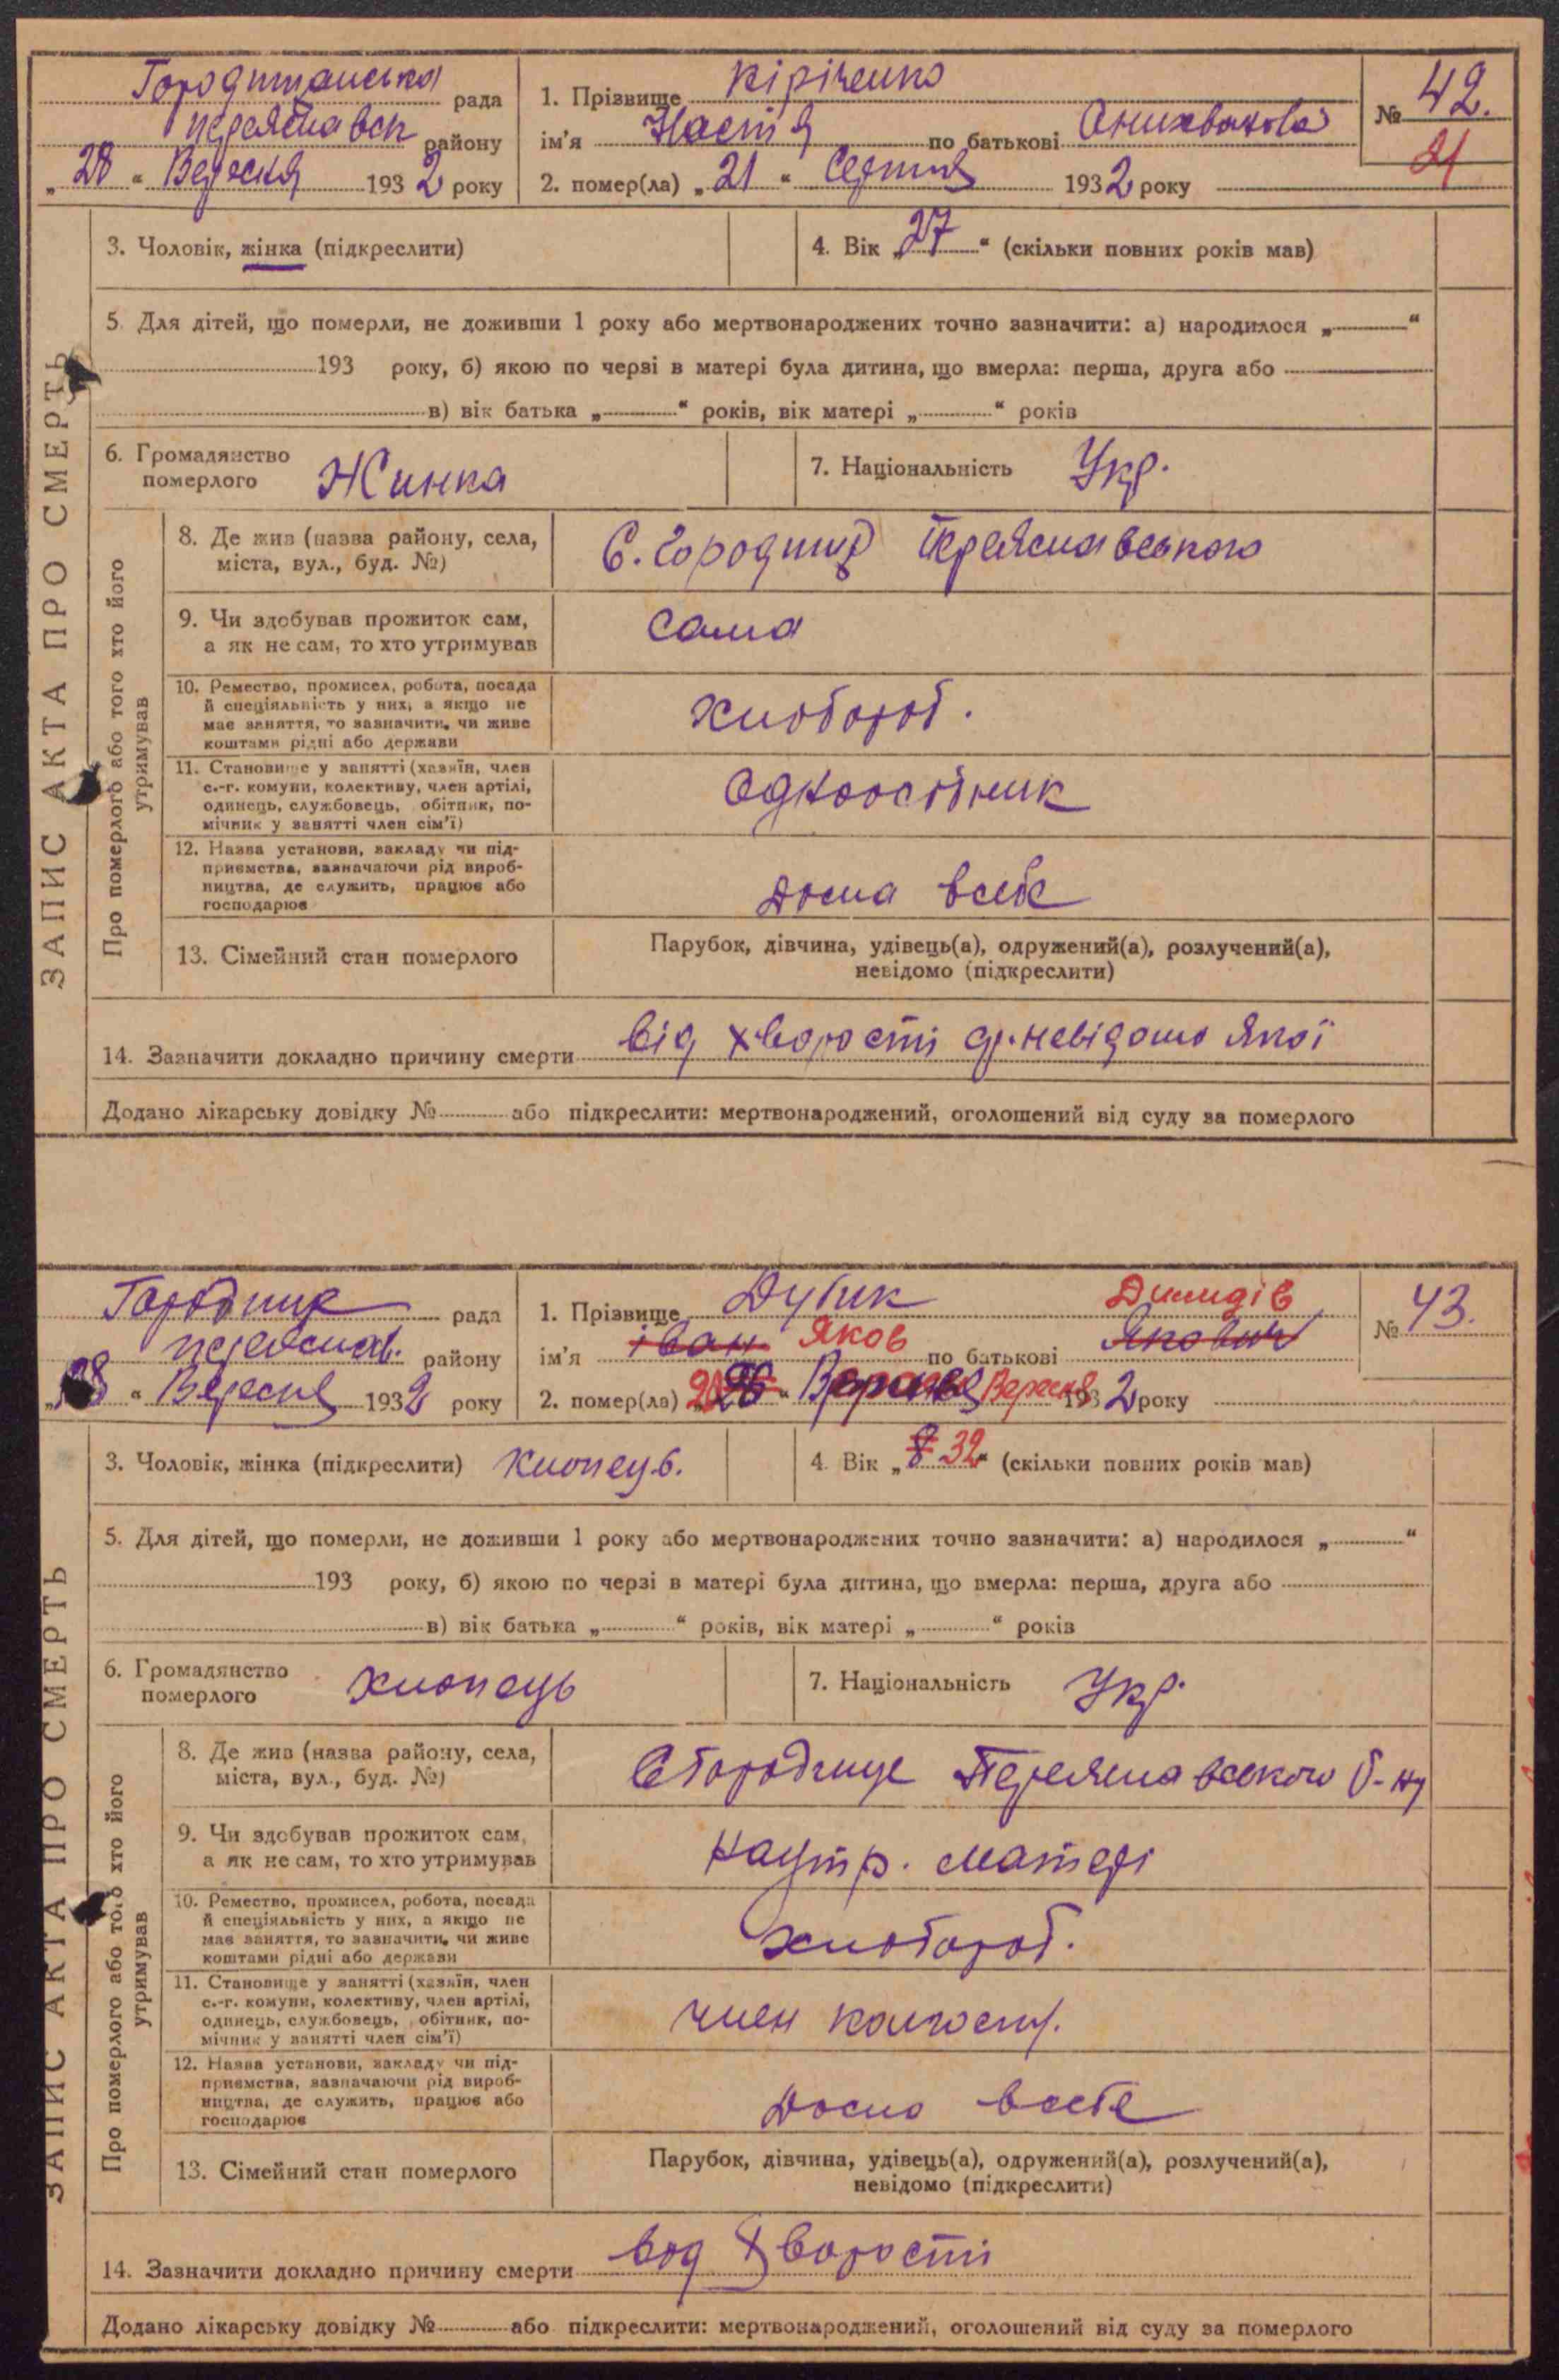 ЗАПИС АКТА ПРО СМЕРТЬ
Городищанська рада
переяславск району
„28“ Вересня 1932 року
1. Прізвище Кіріченко
ім'я Настя по батькові
2. помер(ла) „21“ 1932 року
№ 42.
21
3. Чоловік, жінка (підкреслити)
4. Вік „27“ (скільки повних років мав)
5. Для дітей, що померли, не доживши 1 року або мертвонароджених точно зазначити: а) народилося „ “
193 року, б) якою по черзі в матері була дитина, що вмерла: перша, друга або
в) вік батька „ “ років, вік матері „ “ років
6. Громадянство
померлого Жинка
7. Національність Укр.
Про померлого або того хто його
утримував
8. Де жив (назва району, села,
міста, вул., буд. №)
С. Городищ Переяславського
9. Чи здобував прожиток сам,
а як не сам, то хто утримував
сама
10. Ремество, промисел, робота, посада
й спеціяльність у них, а якщо не
має заняття, то зазначити, чи живе
коштами рідні або держави
хлобороб.
11. Становище у занятті (хазяїн, член
с.-г. комуни, колективу, член артілі,
одинець, службовець, обітник, по-
мічник у занятті член сім'ї)
12. Назва установи, закладу чи під-
приємства, зазначаючи рід вироб-
ництва, де служить, працює або
господарює
дома всебе
13. Сімейний стан померлого
Парубок, дівчина, удівець(а), одружений(а), розлучений(а),
невідомо (підкреслити)
14. Зазначити докладно причину смерти від хворости невідомо якої
Додано лікарську довідку № або підкреслити: мертвонароджений, оголошений від суду за померлого
ЗАПИС АКТА ПРО СМЕРТЬ
Городищ рада
переяслав. району
„28“ Вересня 1932 року
1. Прізвище Дубик
Димидів
ім'я іван Яков по батькові Якович
2. помер(ла) Вересня 1932 року
№ 43.
3. Чоловік, жінка (підкреслити) хлопець.
4. Вік „8 32“ (скільки повних років мав)
5. Для дітей, що померли, не доживши 1 року або мертвонароджених точно зазначити: а) народилося „ “
193 року, б) якою по черзі в матері була дитина, що вмерла: перша, друга або
в) вік батька „ “ років, вік матері „ “ років
6. Громадянство
померлого хлопець
7. Національність Укр.
Про померлого або того хто його
утримував
8. Де жив (назва району, села,
міста, вул., буд. №)
С Городище Переяславского Р-ну
9. Чи здобував прожиток сам,
а як не сам, то хто утримував
наутр. матері
10. Ремество, промисел, робота, посада
й спеціяльність у них, а якщо не
має заняття, то зазначити, чи живе
коштами рідні або держави
хлобороб.
11. Становище у занятті (хазяїн, член
с.-г. комуни, колективу, член артілі,
одинець, службовець, обітник, по-
мічник у занятті член сім'ї)
член колгоспу.
12. Назва установи, закладу чи під-
приємства, зазначаючи рід вироб-
ництва, де служить, працює або
господарює
дома всебе
13. Сімейний стан померлого
Парубок, дівчина, удівець(а), одружений(а), розлучений(а),
невідомо (підкреслити)
14. Зазначити докладно причину смерти вод хворости
Додано лікарську довідку № або підкреслити: мертвонароджений, оголошений від суду за померлого